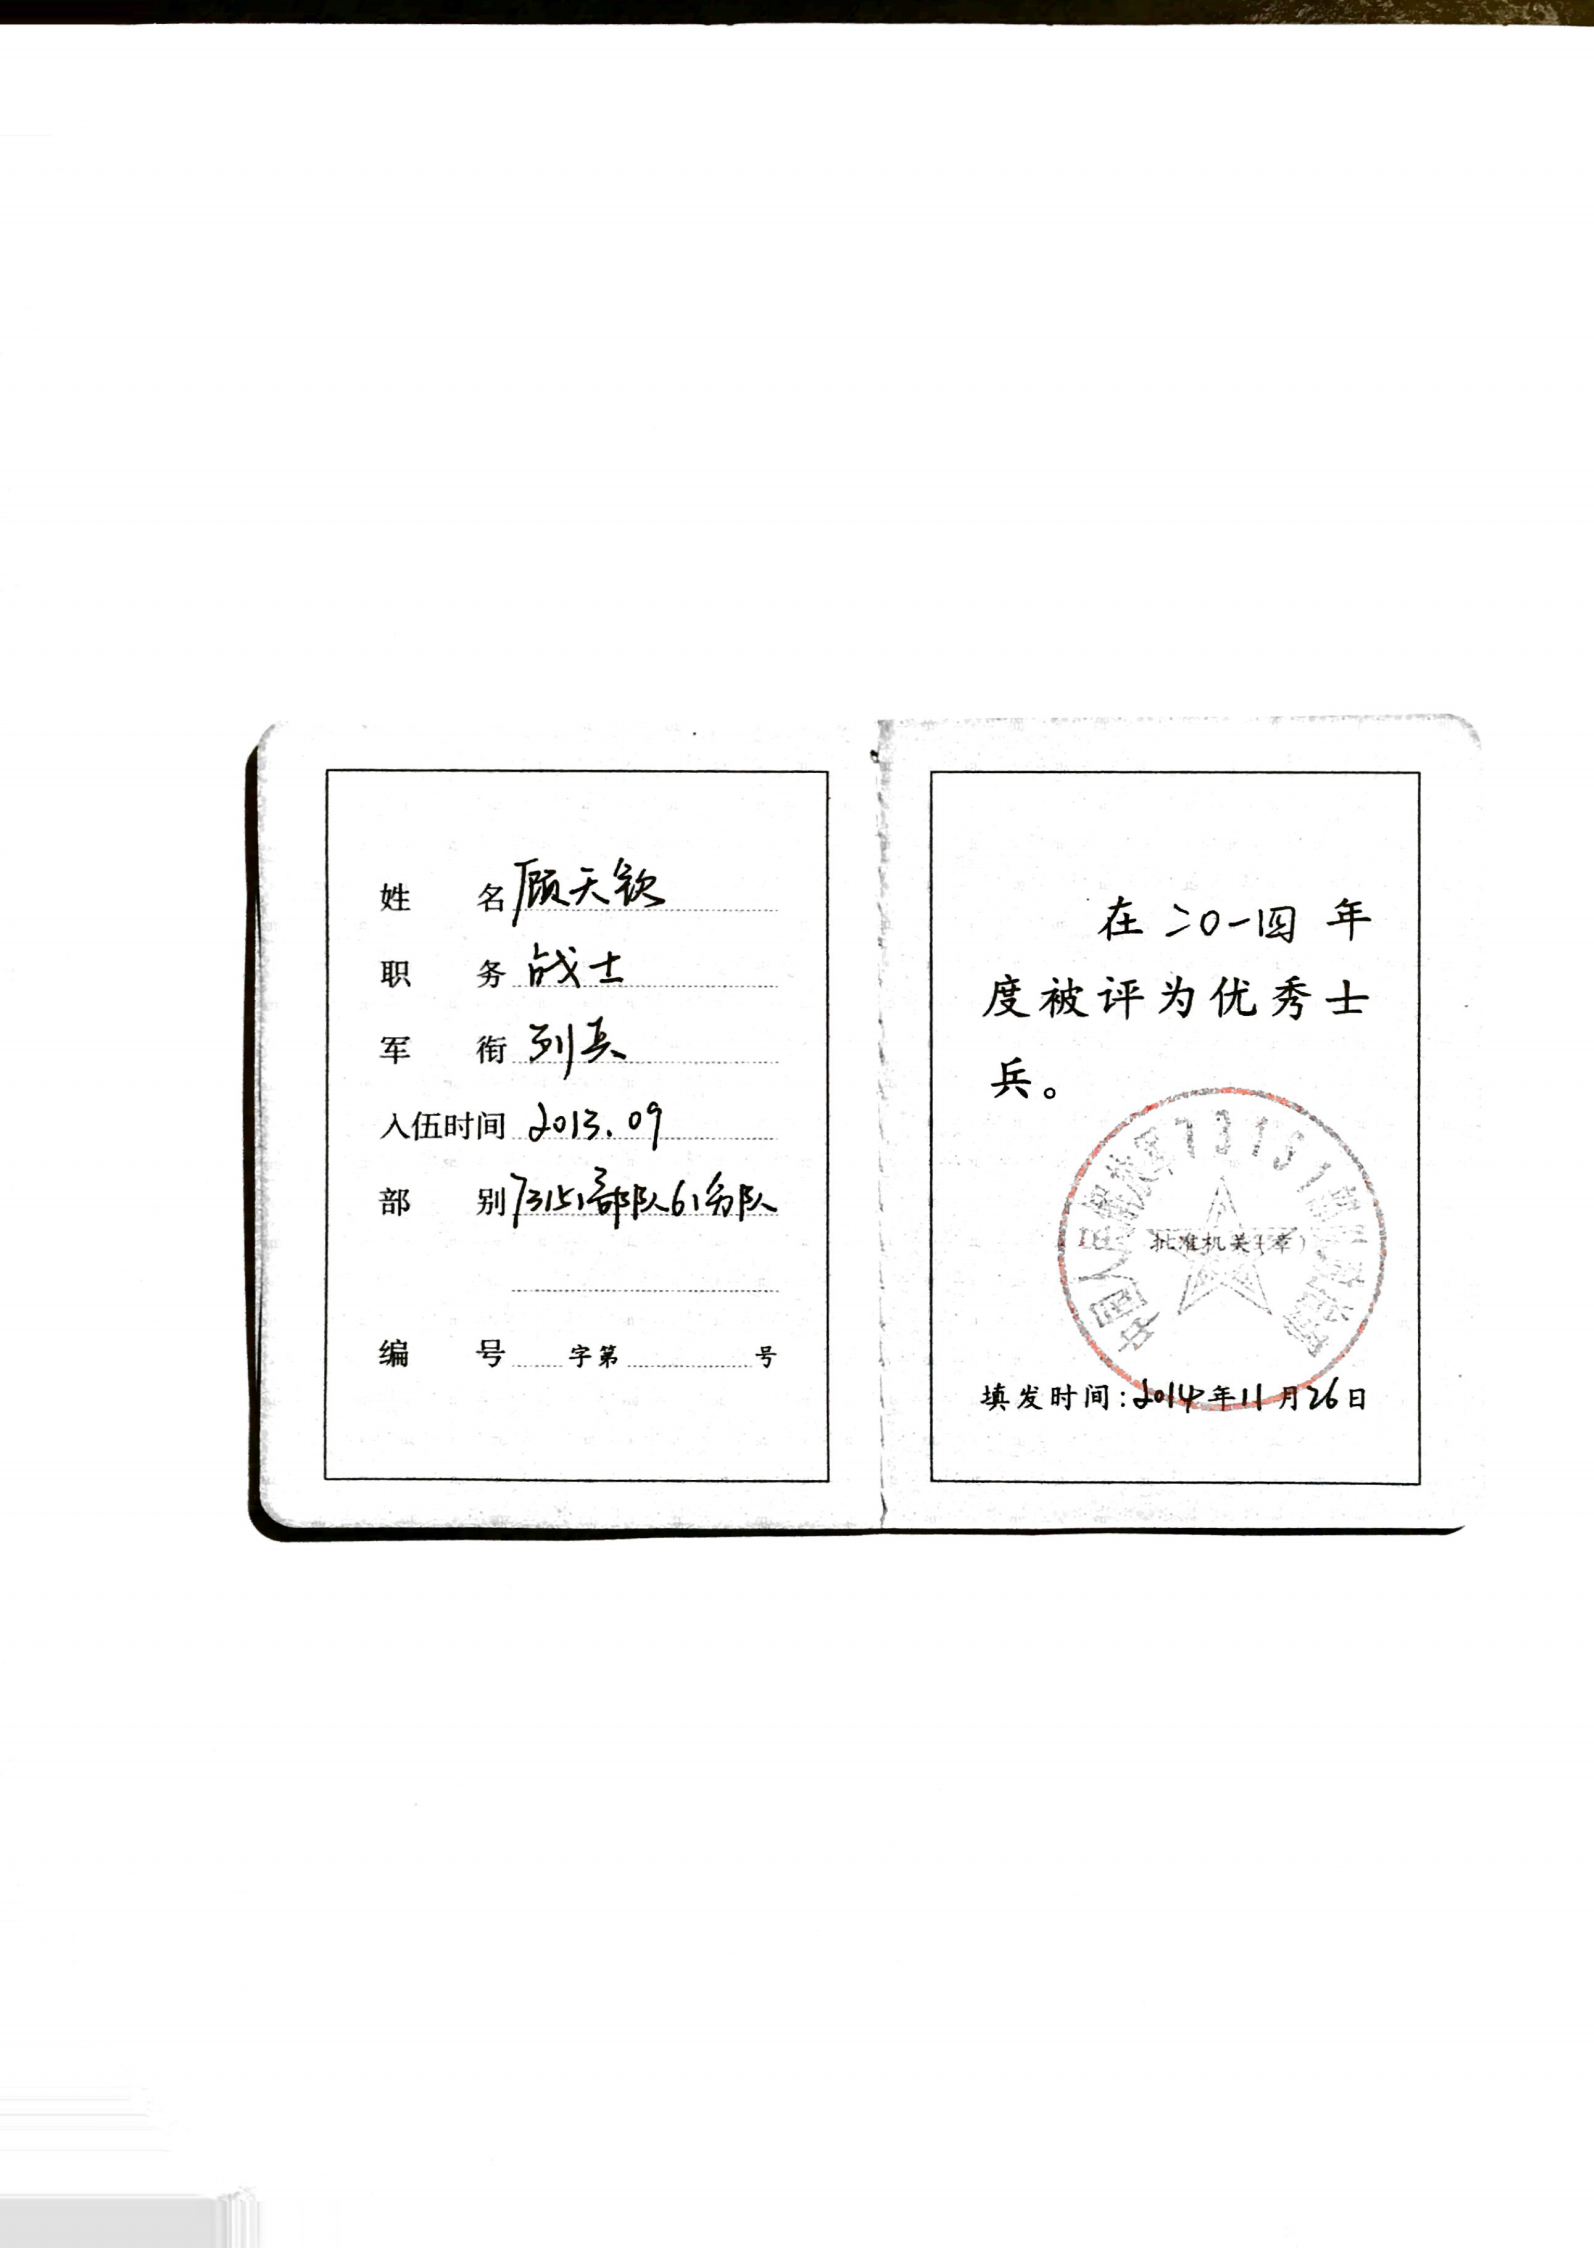 姓 名 顾天钦
职 务 战士
军 衔 列兵
入伍时间 2013.09
部 别 73151部队61分队
编 号 字第 号
在二〇一四年
度被评为优秀士
兵。
中国人民解放军73151部队
批准机关(章)
填发时间:2014年11月26日